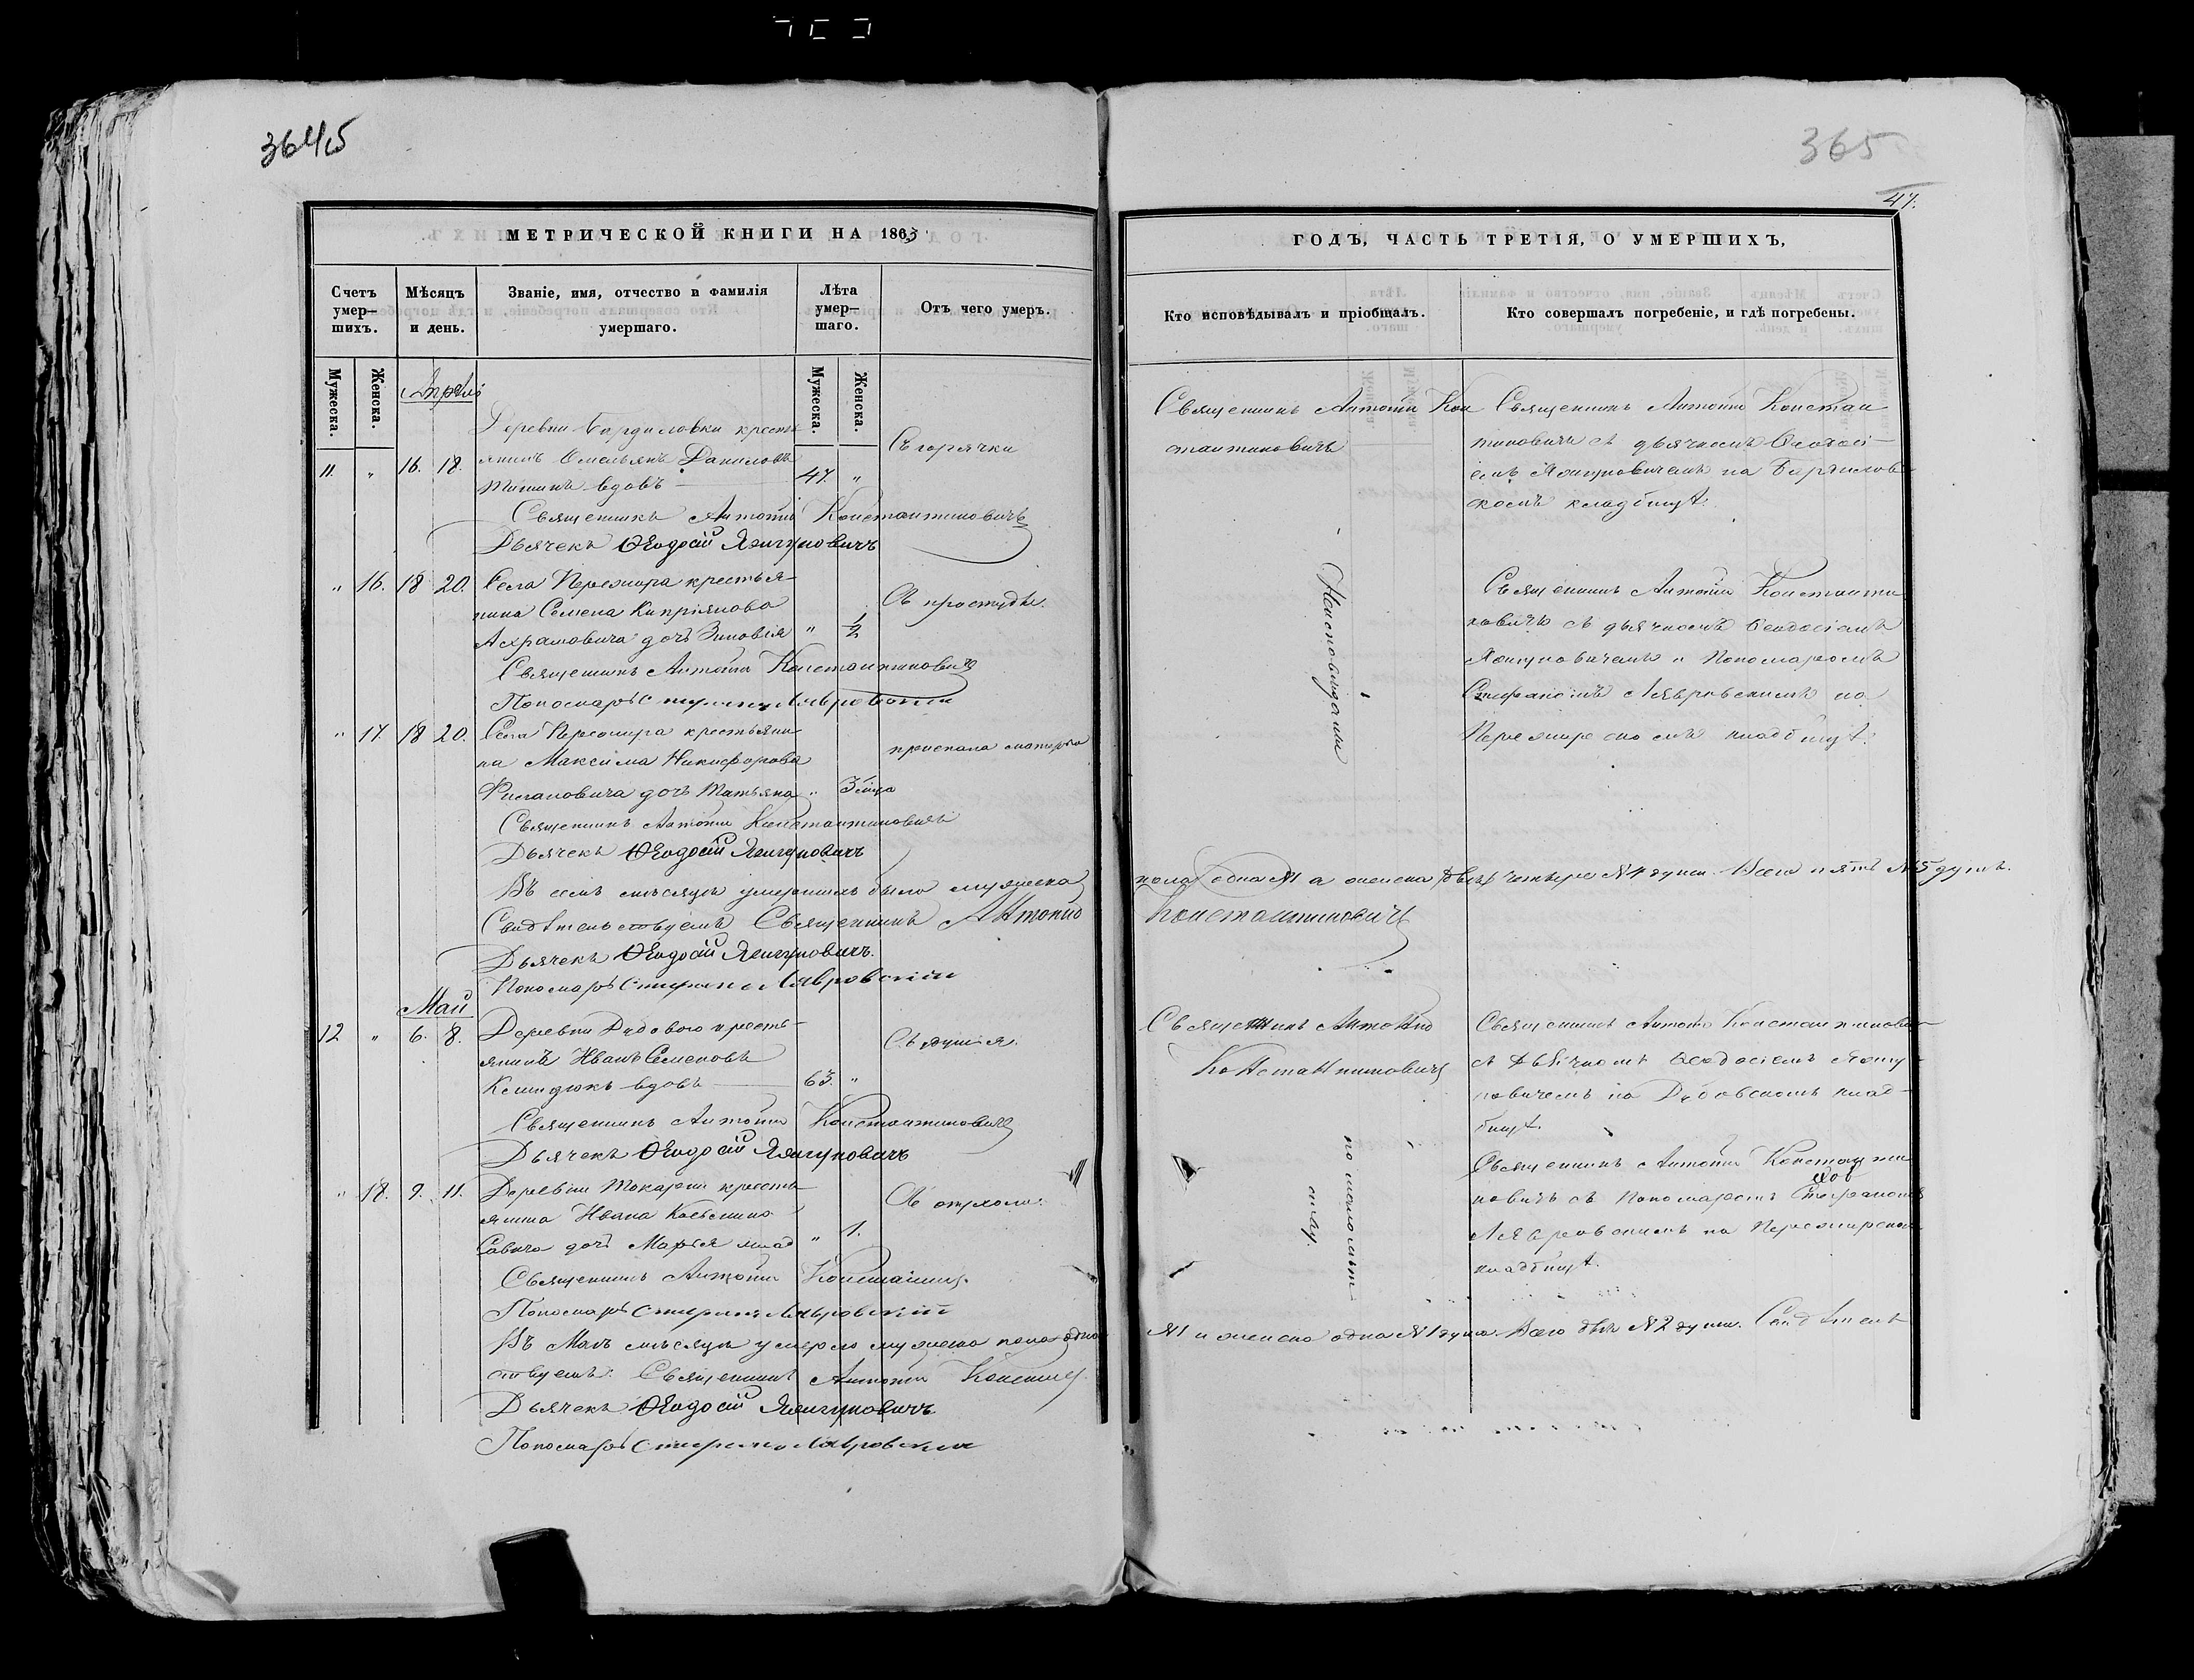 3645
365
47.
МЕТРИЧЕСКОЙ КНИГИ НА 1863
ГОДЪ, ЧАСТЬ ТРЕТІЯ, О УМЕРШИХЪ,
Счетъ умер-шихъ.
Мѣсяцъ и день.
Званіе, имя, отчество и фамилія умершаго.
Лѣта умер-шаго.
Отъ чего умеръ.
Кто исповѣдывалъ и пріобщалъ.
Кто совершалъ погребеніе, и гдѣ погребены.
Мужеска.
Женска.
Мужеска.
Женска.
Апрѣль
Деревни Бардиловки кресть
11 " 16. 18. янинъ Омельянъ Даниловъ
вдовъ 47. "
Съ горячки
Священникъ Антоній Константиновичъ
Дьячекъ Ѳеодосій Яжгуновичъ
Священникъ Антоній Кон
стантиновичъ
Священникъ Антоній Констан
тиновичъ съ дьячкомъ Ѳеодосі-
емъ на Бардилов
скомъ кладбищѣ.
" 16. 18 20. Села Перемира крестья
нина Семена Кипріянова
дочь Зиновія " 1/2
Съ простуды.
Священникъ Антоній Константиновичъ
Пономарь Стефанъ Лавровскій
Неисповѣданы
Священникъ Антоній Константи
новичъ съ дьячкомъ Ѳеодосіемъ
и Пономаремъ
Стефаномъ Лавровскимъ на
Перемирскомъ кладбищѣ.
" 17. 18 20. Села Перемира крестьяни
на Максима Никифорова
дочь Татьяна " 3
приспала матерь
Священникъ Антоній Константиновичъ
Дьячекъ Ѳеодосій Яжгуновичъ
Въ семъ мѣсяцѣ умершихъ было мужеска
пола одна №1 а женска четыре №4 души. Всего пять №5 душъ.
Свидѣтельствуемъ Священникъ Антоній
Константиновичъ
Дьячекъ Ѳеодосій Яжгуновичъ.
Пономарь Стефанъ Лавровскій
Май
12 " 6. 8. Деревни Дидового кресть-
янинъ Иванъ Семеновъ
вдовъ 63. "
Съ удушія.
Священникъ Антоній Константиновичъ
Дьячекъ Ѳеодосій Яжгуновичъ
Священникъ Антоній
Константиновичъ
Священникъ Антоній Константинович
съ Дьячкомъ Ѳеодосіемъ Яжгу
новичемъ на Дидовскомъ клад-
бищѣ.
" 18. 9. 11. Деревни Токари кресть
янина Ивана
Савича дочь Марія млад " 1.
Съ опухоли.
Священникъ Антоній
Пономарь Стефанъ Лавровскій
по малолѣт
ству.
Священникъ Антоній Константи
новичъ съ Пономаремъ Стефаномъ
Лавровскимъ на Перемирском
кладбищѣ.
Въ Маѣ мѣсяцѣ умерло мужеска пола одна
№1 и женска одна №1 душа. Всего двѣ №2 души. Свидѣтель
ствуемъ: Священникъ Антоній
Дьячекъ Ѳеодосій Яжгуновичъ
Пономарь Стефанъ Лавровскій